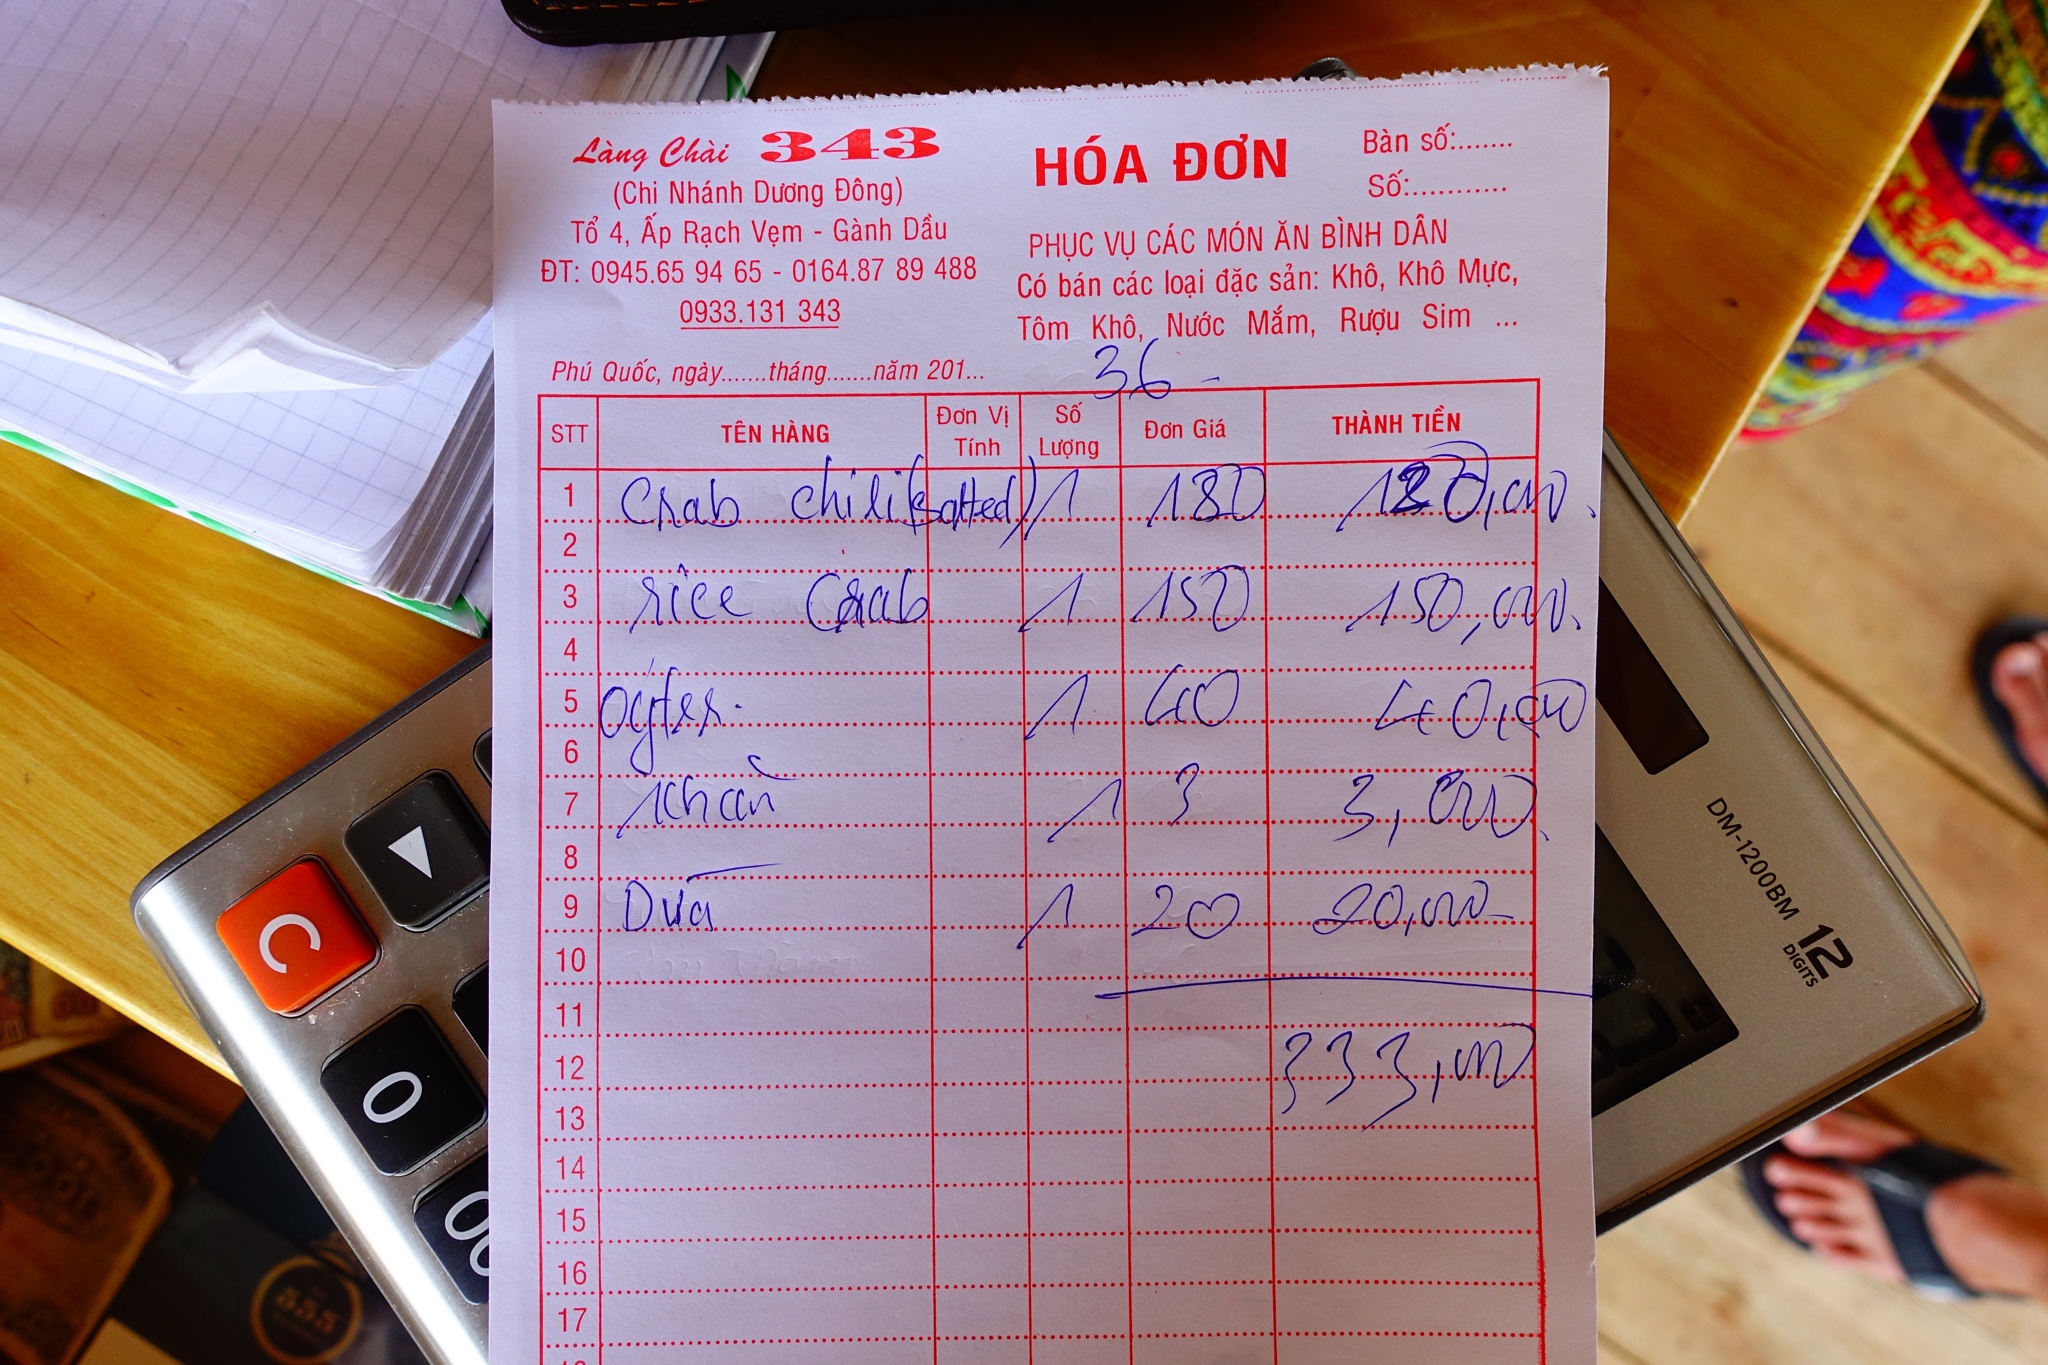 Làng Chài 343
(Chi Nhánh Dương Đông)
Tổ 4, Ấp Rạch Vẹm - Gành Dầu
ĐT: 0945.65 94 65 - 0164.87 89 488
0933.131 343
HÓA ĐƠN
Bàn số:.......
Số:...........
PHỤC VỤ CÁC MÓN ĂN BÌNH DÂN
Có bán các loại đặc sản: Khô, Khô Mực,
Tôm Khô, Nước Mắm, Rượu Sim ...
Phú Quốc, ngày.......tháng.......năm 201...
36 -
STT TÊN HÀNG Đơn Vị Tính Số Lượng Đơn Giá THÀNH TIỀN
1 Crab chili (salted) 1 180 120,000.
2
3 rice Crab 1 150 150,000.
4
5 oyster. 1 40 40,000
6
7 khăn 1 3 3,000.
8
9 Dừa 1 20 20,000
10
11
12 333,000
13
14
15
16
17
DM-1200BM
12
DIGITS
C
0
00
555